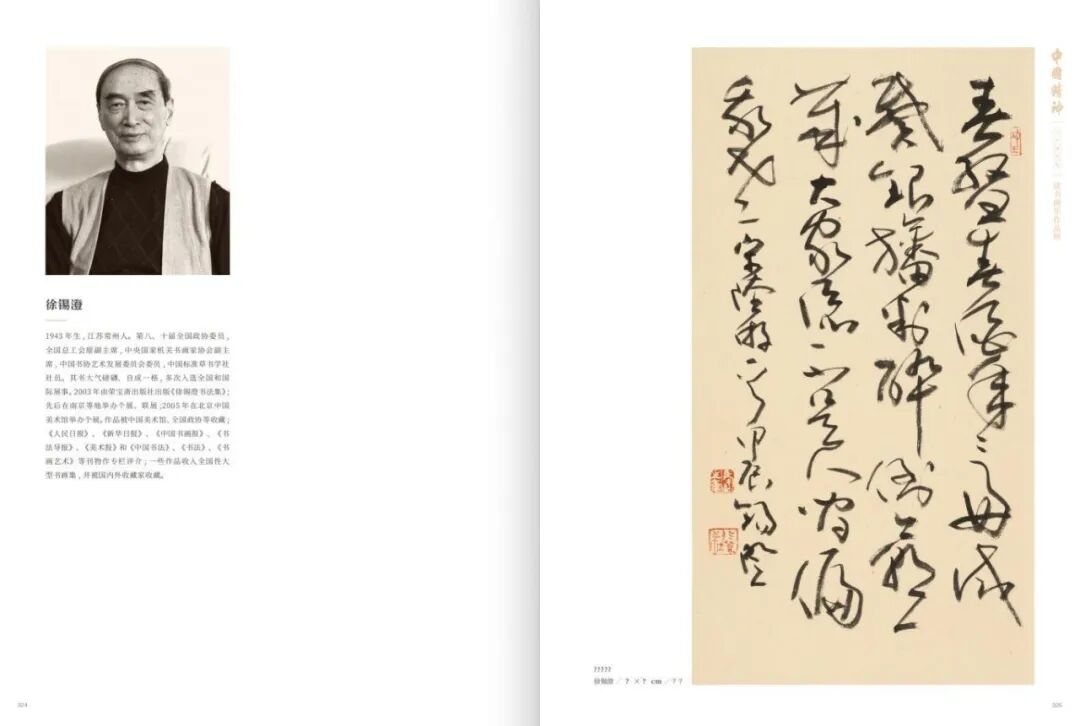 徐锡澄
1943年生，江苏常州人。第八、十届全国政协委员，
全国总工会原副主席，中央国家机关书画家协会副主
席，中国书协艺术发展委员会委员，中国标准草书学社
社员。其书大气磅礴、自成一格，多次入选全国和国
际展事。2003年由荣宝斋出版社出版《徐锡澄书法集》；
先后在南京等地举办个展、联展；2005年在北京中国
美术馆举办个展。作品被中国美术馆、全国政协等收藏；
《人民日报》、《新华日报》、《中国书画报》、《书
法导报》、《美术报》和《中国书法》、《书法》、《书
画艺术》等刊物作专栏评介；一些作品收入全国性大
型书画集，并被国内外收藏家收藏。
324
春盤春酒年年好试
戴銀旛判醉倒今朝一
歲大家添不是人间偏
我老 宋陸游 甲辰 錫澄
中國精神
?????
徐锡澄 / ? ×? cm / ??
325